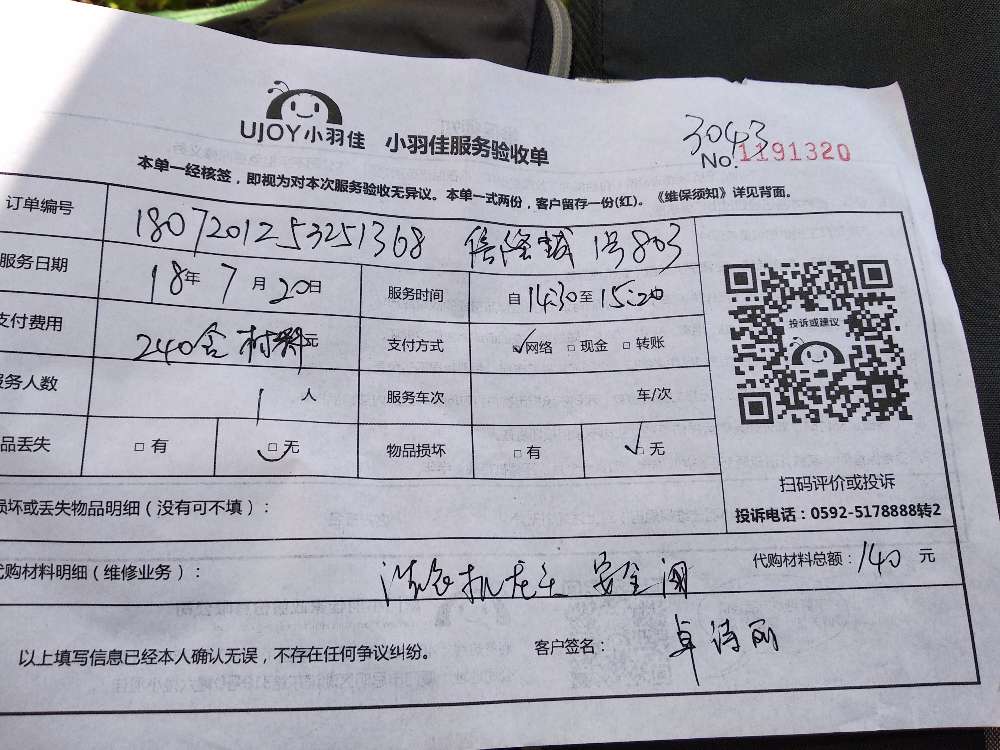 UJOY小羽佳 小羽佳服务验收单
3043
No.1191320
本单一经核签，即视为对本次服务验收无异议。本单一式两份，客户留存一份(红)。《维保须知》详见背面。
订单编号 1807201253251368 1号803
服务日期 18年7月20日 服务时间 自14:30至15:20
支付费用 240含材料元 支付方式 ☑网络 □现金 □转账
服务人数 1人 服务车次 车/次
品丢失 □有 ☑无 物品损坏 □有 ☑无
投诉或建议
扫码评价或投诉
投诉电话：0592-5178888转2
损坏或丢失物品明细（没有可不填）：
代购材料明细（维修业务）： 洗衣机龙头 安全阀 代购材料总额：140元
以上填写信息已经本人确认无误，不存在任何争议纠纷。 客户签名：卓诗丽